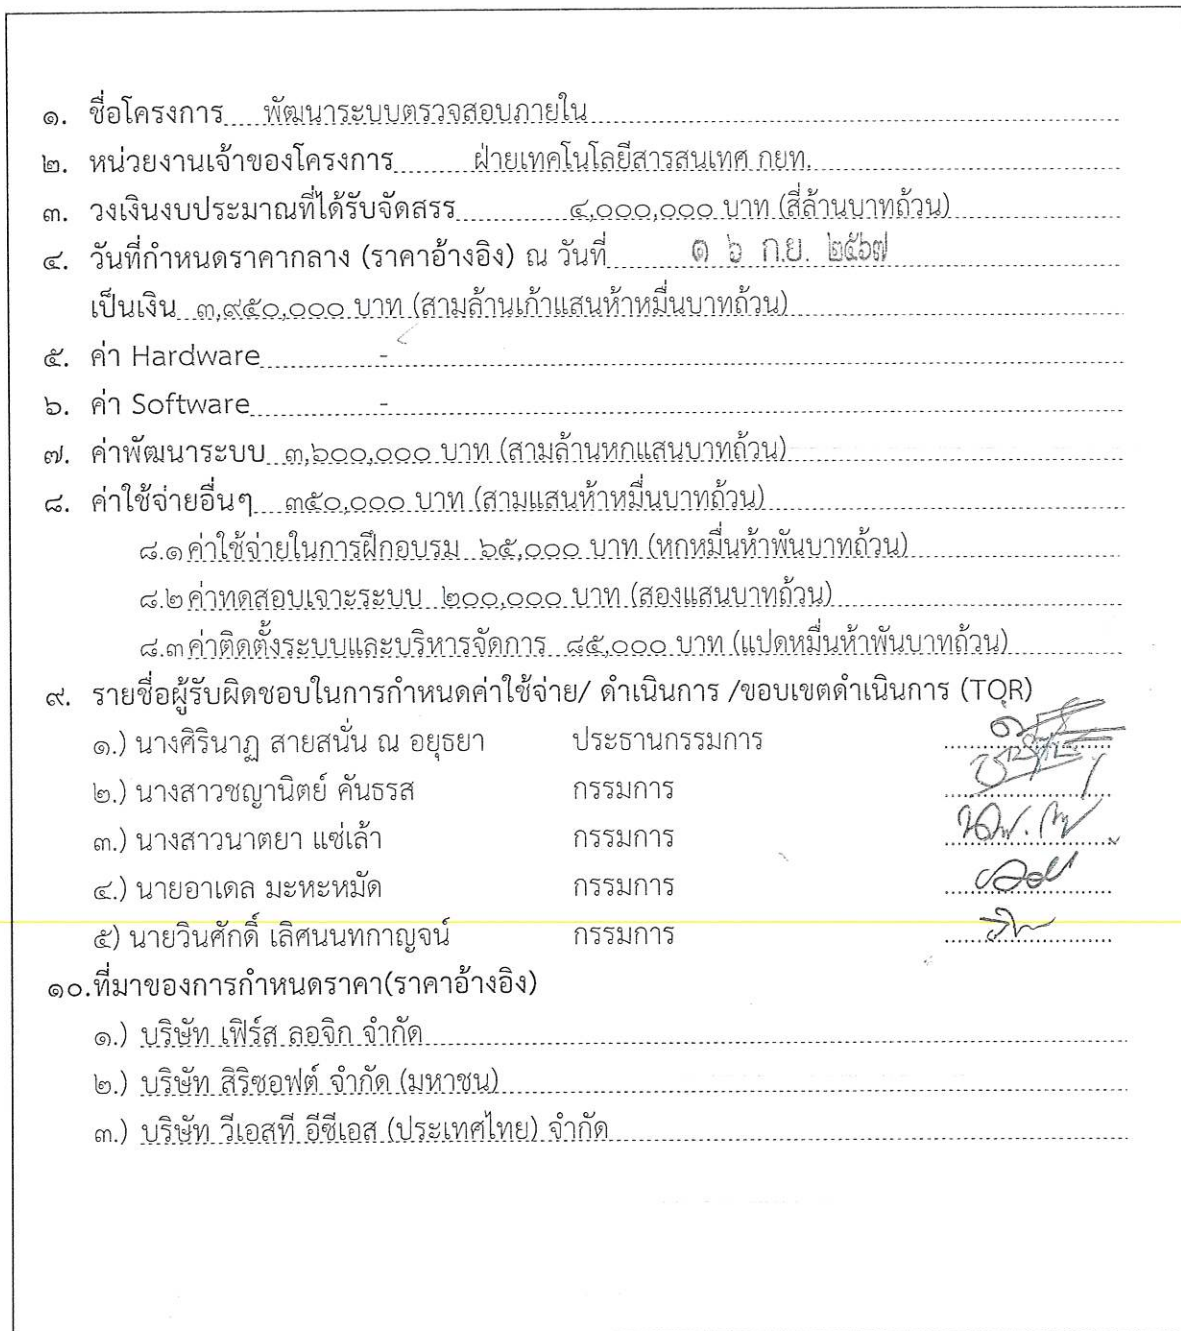 ๑. ชื่อโครงการ พัฒนาระบบตรวจสอบภายใน
๒. หน่วยงานเจ้าของโครงการ ฝ่ายเทคโนโลยีสารสนเทศ กยท.
๓. วงเงินงบประมาณที่ได้รับจัดสรร ๔,๐๐๐,๐๐๐ บาท (สี่ล้านบาทถ้วน)
๔. วันที่กำหนดราคากลาง (ราคาอ้างอิง) ณ วันที่ ๑ ๖ ก.ย. ๒๕๖๗
เป็นเงิน ๓,๙๕๐,๐๐๐ บาท (สามล้านเก้าแสนห้าหมื่นบาทถ้วน)
๕. ค่า Hardware -
๖. ค่า Software -
๗. ค่าพัฒนาระบบ ๓,๖๐๐,๐๐๐ บาท (สามล้านหกแสนบาทถ้วน)
๘. ค่าใช้จ่ายอื่นๆ ๓๕๐,๐๐๐ บาท (สามแสนห้าหมื่นบาทถ้วน)
๘.๑ ค่าใช้จ่ายในการฝึกอบรม ๖๕,๐๐๐ บาท (หกหมื่นห้าพันบาทถ้วน)
๘.๒ ค่าทดสอบเจาะระบบ ๒๐๐,๐๐๐ บาท (สองแสนบาทถ้วน)
๘.๓ ค่าติดตั้งระบบและบริหารจัดการ ๘๕,๐๐๐ บาท (แปดหมื่นห้าพันบาทถ้วน)
๙. รายชื่อผู้รับผิดชอบในการกำหนดค่าใช้จ่าย/ ดำเนินการ /ขอบเขตดำเนินการ (TOR)
๑.) นางศิรินาฏ สายสนั่น ณ อยุธยา ประธานกรรมการ
๒.) นางสาวชญานิตย์ คันธรส กรรมการ
๓.) นางสาวนาตยา แซ่เล้า กรรมการ
๔.) นายอาเดล มะหะหมัด กรรมการ
๕) นายวินศักดิ์ เลิศนนทกาญจน์ กรรมการ
๑๐.ที่มาของการกำหนดราคา(ราคาอ้างอิง)
๑.) บริษัท เฟิร์ส ลอจิก จำกัด
๒.) บริษัท สิริซอฟต์ จำกัด (มหาชน)
๓.) บริษัท วีเอสที อีซีเอส (ประเทศไทย) จำกัด